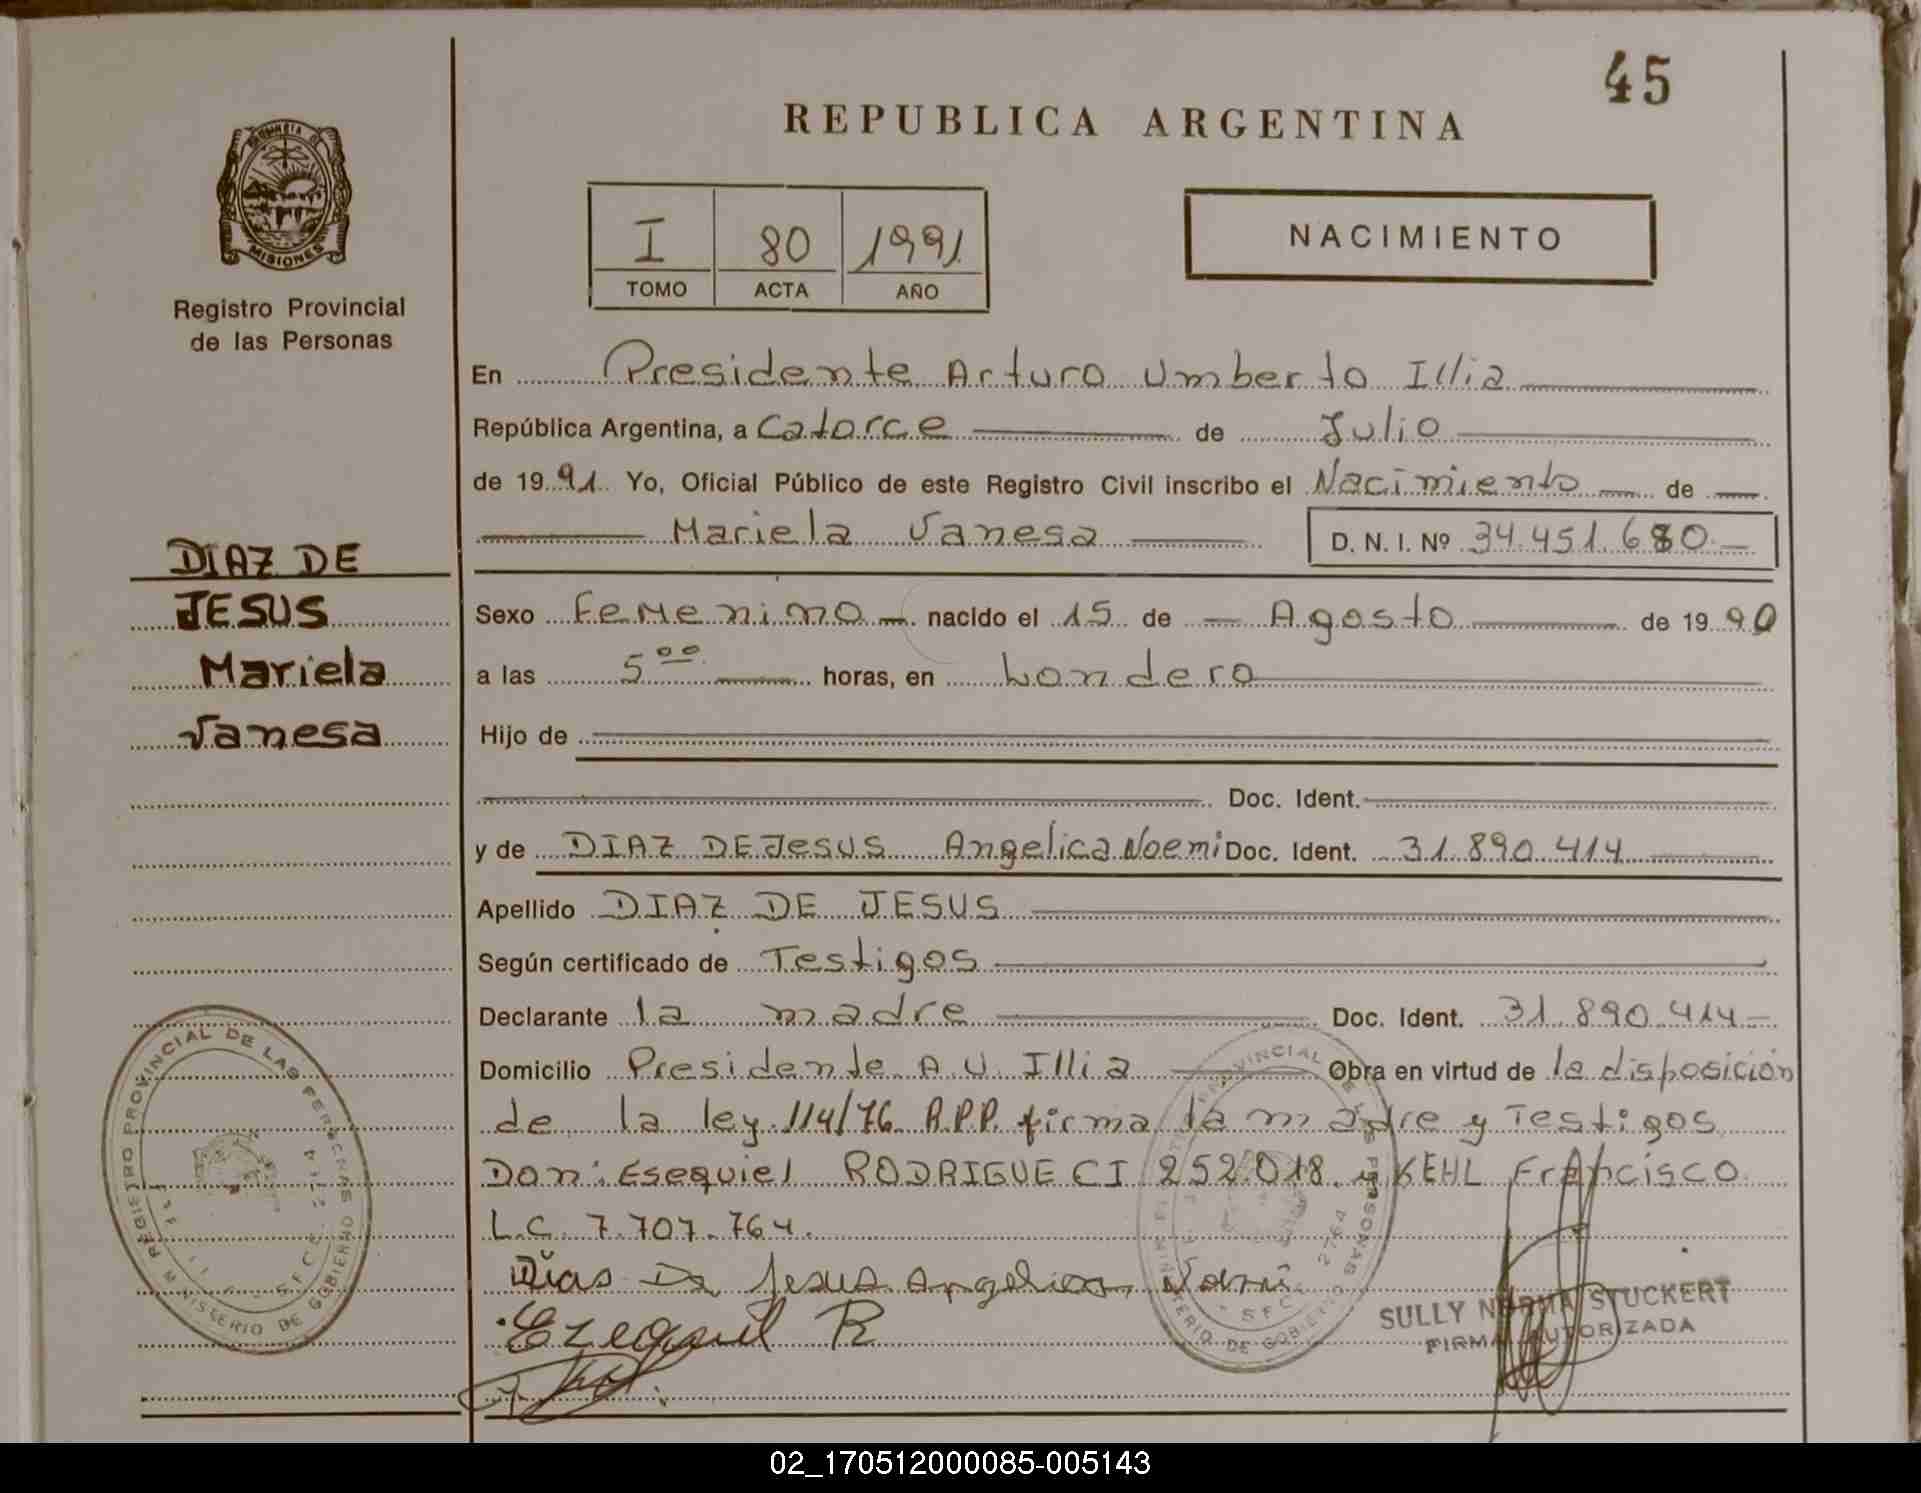 45
REPUBLICA ARGENTINA
PROVINCIA DE
MISIONES
Registro Provincial
de las Personas
I 80 1991
TOMO ACTA AÑO
NACIMIENTO
En Presidente Arturo Umberto Illia
República Argentina, a Catorce de Julio
de 1991 Yo, Oficial Público de este Registro Civil inscribo el Nacimiento de
Mariela Vanesa D. N. I. Nº 34.451.680
DIAZ DE
JESUS
Mariela
Vanesa
Sexo Femenino nacido el 15 de Agosto de 1990
a las 5 00 horas, en Londero
Hijo de
Doc. Ident.
y de DIAZ DE JESUS Angelica Noemi Doc. Ident. 31.890.414
Apellido DIAZ DE JESUS
Según certificado de Testigos
Declarante la madre Doc. Ident. 31.890.414
Domicilio Presidente A.U. Illia Obra en virtud de la disposición
de la ley 114/76 R.P.P. firma la madre y Testigos
Don: Esequiel RODRIGUE CI 252.018. y KEHL Francisco
L.C. 7.707.764.
Dias De Jesus Angelica
Ezequil R
REGISTRO PROVINCIAL DE LAS PERSONAS
MINISTERIO DE GOBIERNO
SFCE 2764
SULLY NORMA STUCKERT
FIRMA AUTORIZADA
02_170512000085-005143